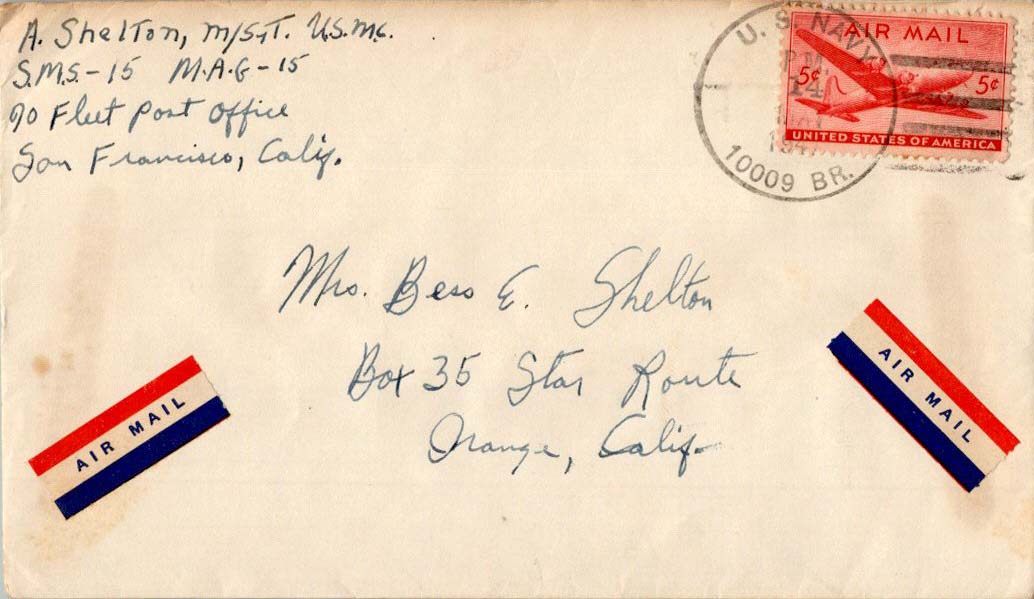 A. Shelton, M/SgT. U.S.M.C.
S.M.S-15 M.A.G-15
℅ Fleet Post Office
San Francisco, Calif.
U.S. NAVY
P.M.
14
10009 BR.
AIR MAIL
5¢ 5¢
UNITED STATES OF AMERICA
Mrs. Bess E. Shelton
Box 35 Star Route
Orange, Calif.
AIR MAIL
AIR MAIL